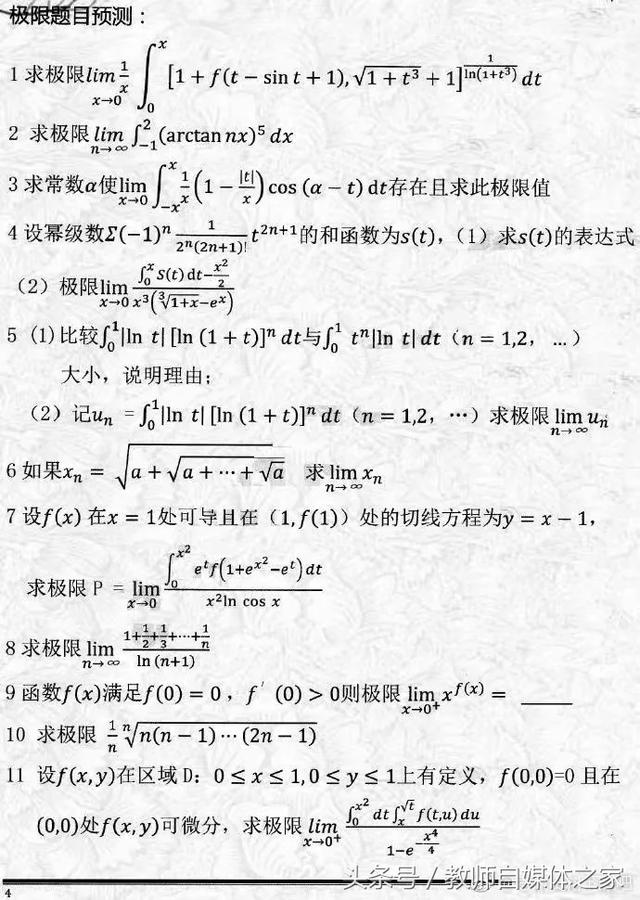 极限题目预测：
1 求极限lim_{x→0} 1/x ∫_0^x [1 + f(t − sin t + 1), √(1 + t³) + 1]^{1/ln(1+t³)} dt
2 求极限lim_{n→∞} ∫_{−1}^2 (arctan nx)⁵ dx
3 求常数α使lim_{x→0} ∫_{−x}^x 1/x (1 − |t|/x) cos (α − t) dt存在且求此极限值
4 设幂级数Σ(−1)ⁿ 1/(2ⁿ(2n+1)!) t^{2n+1}的和函数为s(t)，（1）求s(t)的表达式
（2）极限lim_{x→0} (∫_0^x S(t) dt − x²/2)/(x³(∛(1+x) − eˣ))
5 (1)比较∫_0^1 |ln t| [ln (1 + t)]ⁿ dt与∫_0^1 tⁿ|ln t| dt（n = 1,2， …）
大小，说明理由；
（2）记uₙ = ∫_0^1 |ln t| [ln (1 + t)]ⁿ dt（n = 1,2， ⋯）求极限lim_{n→∞} uₙ
6 如果xₙ = √(a + √(a + ⋯ + √a)) 求lim_{n→∞} xₙ
7 设f(x) 在x = 1处可导且在（1, f(1)）处的切线方程为y = x − 1，
求极限 P = lim_{x→0} (∫_0^{x²} eᵗf(1+e^{x²}−eᵗ) dt)/(x² ln cos x)
8 求极限lim_{n→∞} (1+1/2+1/3+⋯+1/n)/(ln (n+1))
9 函数f(x)满足f(0) = 0 ，f′ (0) > 0则极限lim_{x→0⁺} x^{f(x)} = ____
10 求极限 1/n ⁿ√(n(n − 1) ⋯ (2n − 1))
11 设f(x, y)在区域 D：0 ≤ x ≤ 1, 0 ≤ y ≤ 1上有定义，f(0,0)=0 且在
(0,0)处f(x, y)可微分，求极限 lim_{x→0⁺} (∫_0^{x²} dt ∫_x^{√t} f(t,u) du)/(1−e^{−x⁴/4})
4
头条号／教师自媒体之家